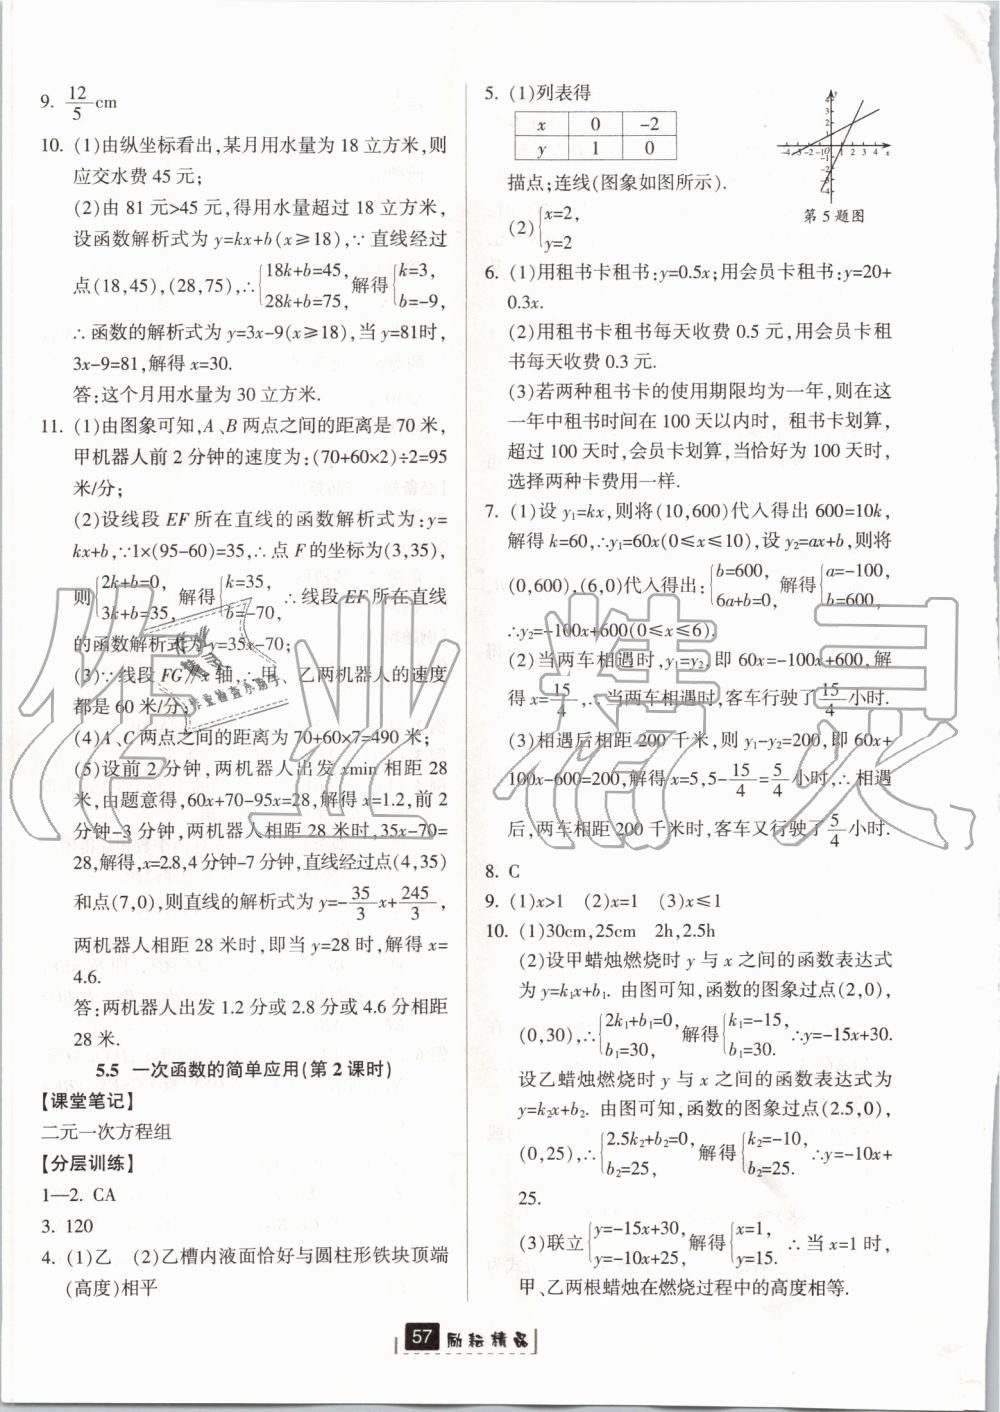 9. 12/5 cm
10. (1)由纵坐标看出,某月用水量为 18 立方米,则
应交水费 45 元;
(2)由 81 元>45 元,得用水量超过 18 立方米,
设函数解析式为 y=kx+b(x≥18),∵直线经过
点(18,45),(28,75),∴{18k+b=45, 28k+b=75, 解得{k=3, b=-9,
∴函数的解析式为 y=3x-9(x≥18),当 y=81时,
3x-9=81,解得 x=30.
答:这个月用水量为 30 立方米.
11. (1)由图象可知,A、B 两点之间的距离是 70 米,
甲机器人前 2 分钟的速度为:(70+60×2)÷2=95
米/分;
(2)设线段 EF 所在直线的函数解析式为:y=
kx+b,∵1×(95-60)=35,∴点 F 的坐标为(3,35),
则{2k+b=0, 3k+b=35, 解得{k=35, b=-70, ∴线段 EF 所在直线
的函数解析式为 y=35x-70;
(3)∵线段 FG∥x 轴,∴甲、乙两机器人的速度
都是 60 米/分;
(4)A、C 两点之间的距离为 70+60×7=490 米;
(5)设前 2 分钟,两机器人出发 xmin 相距 28
米,由题意得,60x+70-95x=28,解得 x=1.2,前 2
分钟-3 分钟,两机器人相距 28 米时,35x-70=
28,解得,x=2.8,4 分钟-7 分钟,直线经过点(4,35)
和点(7,0),则直线的解析式为 y=-35/3 x+245/3,
两机器人相距 28 米时,即当 y=28 时,解得 x=
4.6.
答:两机器人出发 1.2 分或 2.8 分或 4.6 分相距
28 米.
5.5 一次函数的简单应用(第 2 课时)
【课堂笔记】
二元一次方程组
【分层训练】
1—2. CA
3. 120
4. (1)乙 (2)乙槽内液面恰好与圆柱形铁块顶端
(高度)相平
5. (1)列表得
x 0 -2
y 1 0
描点;连线(图象如图所示).
第 5 题图
(2){x=2, y=2
6. (1)用租书卡租书:y=0.5x;用会员卡租书:y=20+
0.3x.
(2)用租书卡租书每天收费 0.5 元,用会员卡租
书每天收费 0.3 元.
(3)若两种租书卡的使用期限均为一年,则在这
一年中租书时间在 100 天以内时，租书卡划算,
超过 100 天时,会员卡划算,当恰好为 100 天时,
选择两种卡费用一样.
7. (1)设 y₁=kx,则将(10,600)代入得出 600=10k,
解得 k=60,∴y₁=60x(0≤x≤10),设 y₂=ax+b,则将
(0,600),(6,0)代入得出:{b=600, 6a+b=0, 解得{a=-100, b=600,
∴y₂=-100x+600(0≤x≤6).
(2)当两车相遇时,y₁=y₂,即 60x=-100x+600,解
得 x=15/4,∴当两车相遇时,客车行驶了15/4小时.
(3)相遇后相距 200 千米,则 y₁-y₂=200,即 60x+
100x-600=200,解得 x=5,5-15/4=5/4小时,∴相遇
后,两车相距 200 千米时,客车又行驶了5/4小时.
8. C
9. (1)x>1 (2)x=1 (3)x≤1
10. (1)30cm,25cm 2h,2.5h
(2)设甲蜡烛燃烧时 y 与 x 之间的函数表达式
为 y=k₁x+b₁. 由图可知,函数的图象过点(2,0),
(0,30),∴{2k₁+b₁=0, b₁=30, 解得{k₁=-15, b₁=30. ∴y=-15x+30.
设乙蜡烛燃烧时 y 与 x 之间的函数表达式为
y=k₂x+b₂. 由图可知,函数的图象过点(2.5,0),
(0,25),∴{2.5k₂+b₂=0, b₂=25, 解得{k₂=-10, b₂=25. ∴y=-10x+
25.
(3)联立{y=-15x+30, y=-10x+25, 解得{x=1, y=15. ∴当 x=1 时,
甲、乙两根蜡烛在燃烧过程中的高度相等.
57 励耘精品
作业精灵